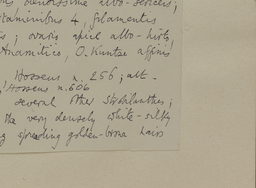 densissime albo-sericeis;
staminibus 4, filamentis
; ovario apice albo-hirto,
Anamitico, O. Kuntze affinis
Hosseus n. 256; alt.
! Hosseus n. 606
several other strobilanthes;
the very densely white-silky
spreading golden-brown hairs